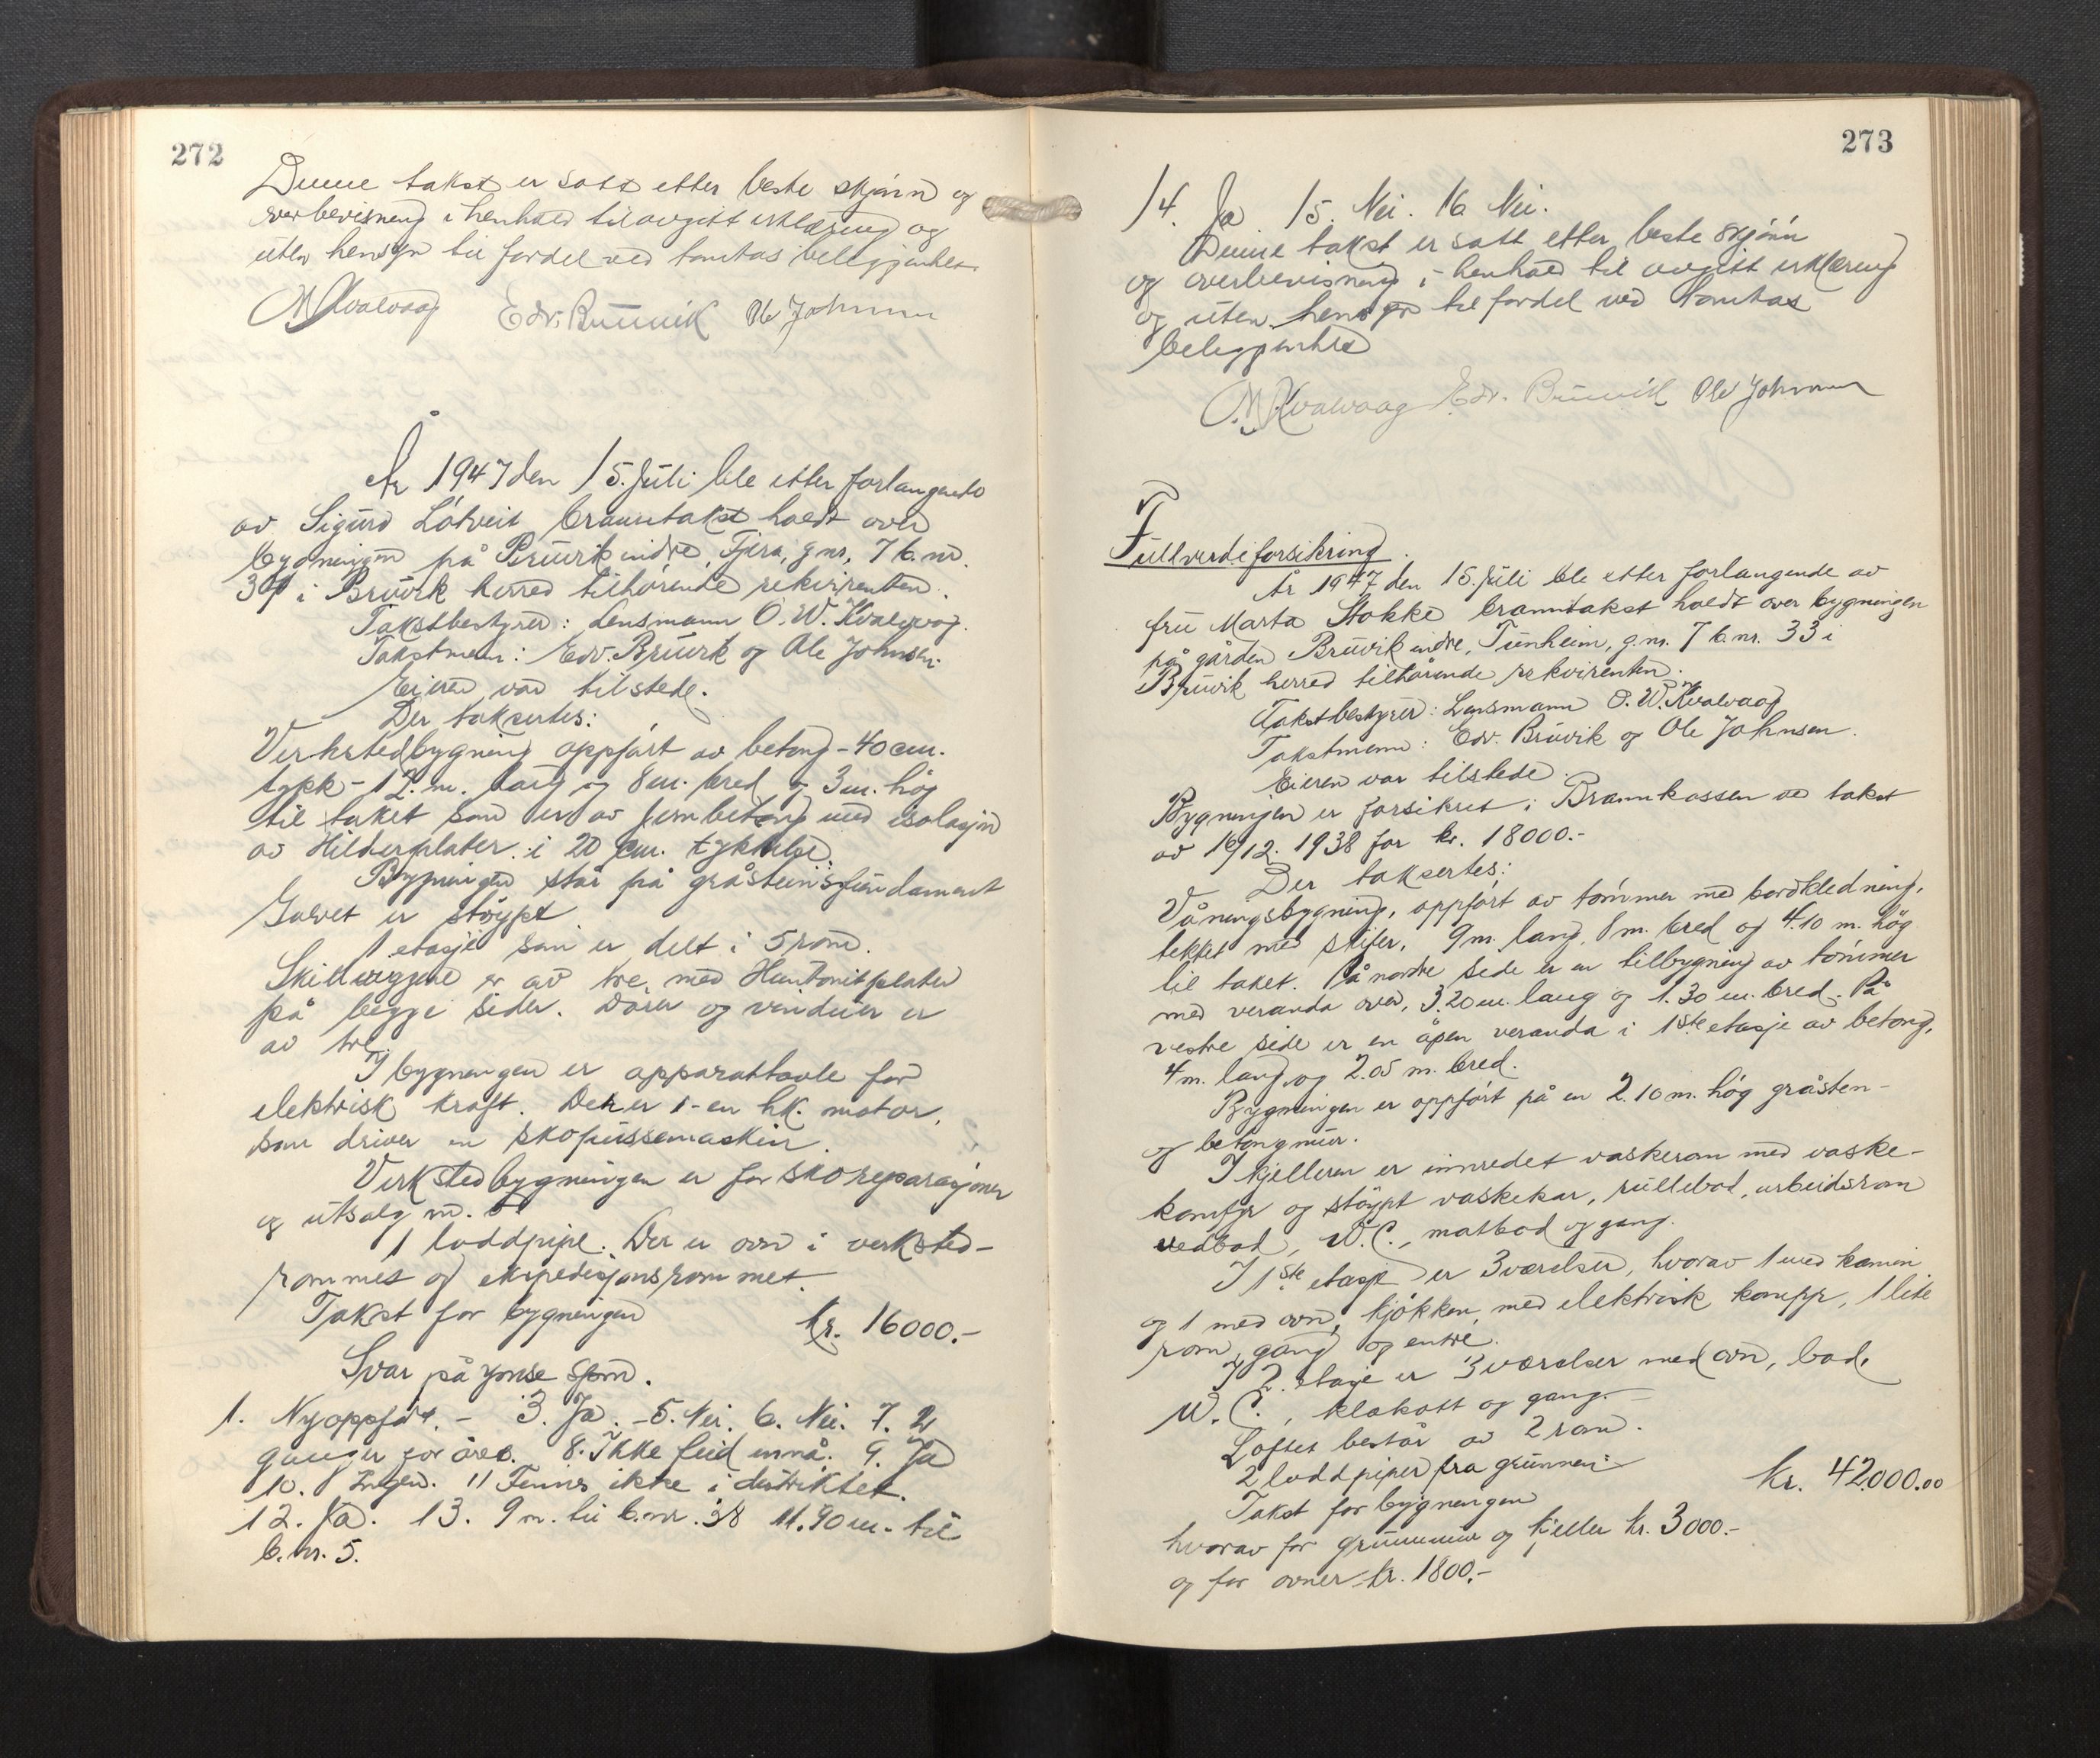 272
Denne takst er satt etter beste skjønn og
overbevisning i henhold til avgitt erklæring og
uten hensyn til fordel ved tomtas beliggenhet.
O. W. Kvalvaag Edv. Bruvik Ole Johnsen
År 1947 den 15. juli ble etter forlangende
av Sigurd Lótveit branntakst holdt over
bygningen på Bruvik indre, Fjera, g.nr. 7 b.nr.
i Bruvik herred tilhørende rekvirenten.
Takstbestyrer: Lensmann O. W. Kvalvaag.
Takstmenn: Edv. Bruvik og Ole Johnsen.
Eieren var tilstede.
Der taksertes:
Verkstedbygning oppført av betong - 40 cm.
tykk - 12. m. lang og 8 m. bred og 3 m. høg
til taket som er av jernbetong med isolasjon
av Hilderplater i 20 cm. tykkelse.
Bygningen står på gråsteinsfundament
Golvet er støypt
1 etasje som er delt i 5 rom.
Skilleveggene er av tre med Huntonitplater
på begge sider. Dører og vinduer er
av tre.
I bygningen er apparattavle for
elektrisk kraft. Der er 1 - en hk. motor,
som driver en skopussemaskin.
Verkstedbygningen er for skoreparasjoner
og utsalg m. v.
1 loddpipe. Der er ovn i verksted-
rommet og ekspedisjonsrommet.
Takst for bygningen kr. 16000.-
Svar på spm.
1. Nyoppført. - 3. Ja. - 5. Nei. 6. Nei. 7. 2
ganger for året. 8. Ikke feid ennå. 9. Ja
10. Ingen. 11 Finnes ikke i distriktet.
12. Ja. 13. 9 m. til b.nr. 38 11.90 m. til
b.nr. 5.
273
14. Ja 15. Nei. 16 Nei.
Denne takst er satt etter beste skjønn
og overbevisning i henhold til avgitt erklæring
og uten hensyn til fordel ved tomtas
beliggenhet
O. W. Kvalvaag Edv. Bruvik Ole Johnsen
Fullverdiforsikring.
År 1947 den 15. juli ble etter forlangende av
fru Marta Stokke branntakst holdt over bygningen
på gården Bruvik indre, Tunheim, g.nr. 7 b.nr. 33 i
Bruvik herred tilhørende rekvirenten.
Takstbestyrer: Lensmann O. W. Kvalvaag
Takstmenn: Edv. Bruvik og Ole Johnsen.
Eieren var tilstede.
Bygningen er forsikret i Brannkassen ved takst
av 16/12. 1938 for kr. 18000.-
Der taksertes:
Våningsbygning, oppført av tømmer med bordkledning,
tekket med skifer, 9 m. lang, 8 m. bred og 4.10 m. høg
til taket. På nordre side er en tilbygning av tømmer
med veranda over, 3.20 m. lang og 1.30 m. bred. På
vestre side er en åpen veranda i 1ste etasje av betong,
4 m. lang og 2.05 m. bred.
Bygningen er oppført på en 2.10 m. høg gråsten-
og betongmur.
I kjelleren er innredet vaskerom med vaske-
komfyr og støypt vaskekar, rullebod, arbeidsrom
vedbod, W.C., matbod og gang.
I 1ste etasje er 3 værelser, hvorav 1 med kamin
og 1 med ovn, kjøkken med elektrisk komfyr, 1 lite
rom, gang og entre.
I 2. etasje er 3 værelser med ovn, bad,
W.C., klokott og gang.
Loftet består av 2 rom.
2 loddpiper fra grunnen
Takst for bygningen kr. 42.000.00
hvorav for grunnmur og kjeller kr. 3000.-
og for ovner kr. 1800.-